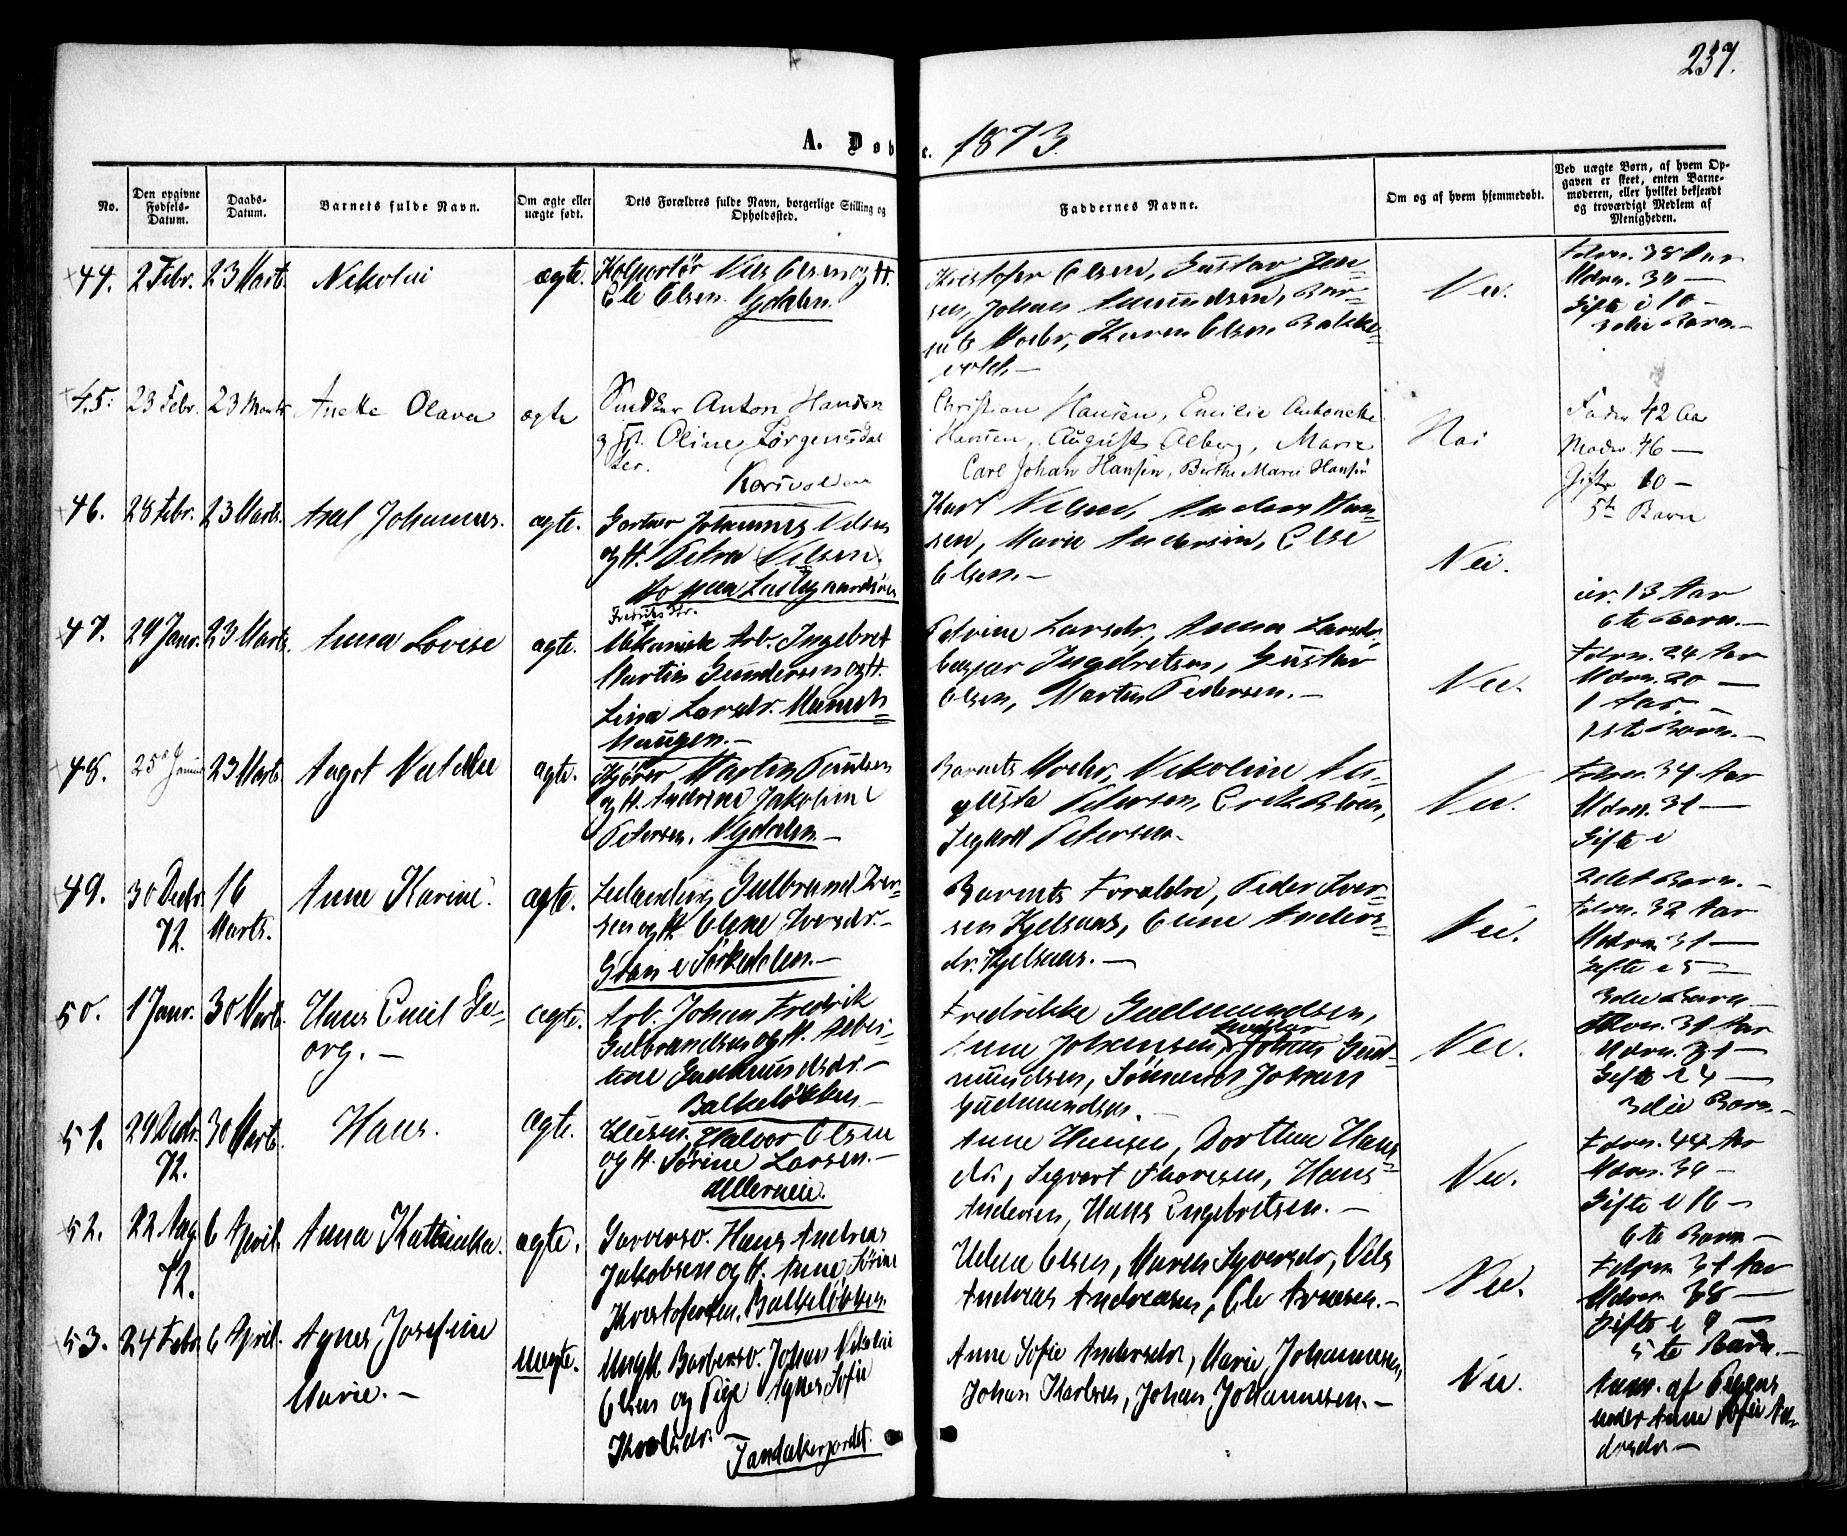 237.
A. Døbte. 1873.
No.
Den opgivne Fødsels-Datum.
Daabs-Datum.
Barnets fulde Navn.
Om ægte eller uægte født.
Dets Forældres fulde Navn, borgerlige Stilling og Opholdssted.
Faddernes Navne.
Om og af hvem hjemmedøbt.
Ved uægte Børn, af hvem Opgaven er skeet, enten Barnemoderen, eller hvilket bekjendt og troværdigt Medlem af Menigheden.
44. 2 Febr. 23 Marts. Nikolai ægte. Kolportør Nils Olsen og H.
Ole Olsen. Nydalen.
Kristofer Olsen, Gustav Jen-
sen, Johan Amundsen, Bar-
nets Moder, Karen Olsen
Nei.
Fdrn. 38 Aar
Mdrn. 30 —
Gifte i 10 —
3die Barn. —
45. 23 Febr. 23 Marts Anette Olava ægte Snedker Anton Hansen
og H. Oline Jørgensdat
ter.
Korsvolden
Christian Hansen, Emilie Antonette
Hansen, August Alberg, Marie
Carl Johan Hansen, Berthe Marie Hansen
Nei
Fader 42 Aa
Moder 46 —
Gifte 10 —
5te Barn
46. 28 Febr. 23 Marts. Axel Johannes. ægte. Gartner Johannes Nilsen
og H. Petra Nilsen
Karl Nilsen, Anders Han-
sen, Marie Andersen, Else
Olsen. —
Nei.
13 Aar
6te Barn. —
47. 29 Janr. 23 Marts. Anna Lovise ægte. Mekanisk Arb. Ingebret
Martin Gundersen og H.
Lina Larsdr.
Haugen. —
Petrine Larsdr, Anna Larsdr.
Ingebretsen, Gustav
Olsen, Martin Pedersen. —
Nei.
Fdrn. 24 Aar
Mdrn. 20 —
1 Aar. —
1ste Barn. —
48. 25 Januar 23 Marts. Aagot Natalie ægte. Kjører Martin Paulsen
og H. Andrine Jakobine
Petersen. Nydalen —
Barnets Moder, Nikoline Au-
gusta Petersen, Erik Olsen,
Petersen.
Nei.
Fdrn. 34 Aar
Mdrn. 31 —
Gifte i
2det Barn. —
49. 30 Decbr. 72. 16 Marts. Anne Karine. ægte. Leilænding Gulbrand Iver-
sen og H. Elene Iversdr. —
i Sørkedalen. —
Barnets Forældre, Peder Iver-
sen Kjelsaas, Anders-
dr. Kjelsaas. —
Nei.
Fdrn. 32 Aar
Mdrn. 31 —
Gifte i 5 —
3die Barn. —
50. 1 Janr. 30 Marts. Hans Emil Ge-
org. —
ægte. Arb. Johan Fredrik
Gulbrandsen og H. Alber-
tine Gudmundsdr. —
Balkeløkken —
Fredrikke Gudmundsen,
Anne Johansen, Johan Gud-
mundsen, Sømand Johan
Gudmundsen. —
Nei.
Fdrn. 31 Aar
Mdrn. 31 —
Gifte i 4 —
3die Barn. —
51. 29 Decbr. 72. 30 Marts. Hans. ægte. Husm. Halvor Olsen
og H. Sørine Larsen. —
Ullerneie.
Anne Hansen, Dorthea Hans-
dr., Segvart Thoresen, Hans
Andersen, Hans Engebretsen. —
Nei.
Fdrn. 44 Aar
Mdrn. 39 —
Gifte i 16 —
6te Barn —
52. 22 Aug. 72. 6 April. Anna Kathinka. ægte. Garversv. Hans Andreas
Jakobsen og H. Anne Sørine
Kristofersen. Balkeløkken
Helene Olsen, Maren Syversdr, Nils
Andreas Andreasen, Ole Arnesen. —
Nei.
Fdrn 31 Aar
Mdrn. 38 —
Gifte i 9 —
5te Barn. —
53. 24 Febr. 6 April. Agnes Josefine
Marie. —
Uægte. Ungk. Barbersv. Johan Nikolai
Olsen og Pige Agnes Sofie
Karlsdr.
Tandbergjordet.
Anne Sofie Andersdr, Marie Johannesen,
Johan Karlsen, Johan Johannesen. —
Nei.
Anm. af Pigens
Moder Anne Sofie An-
dersdr —